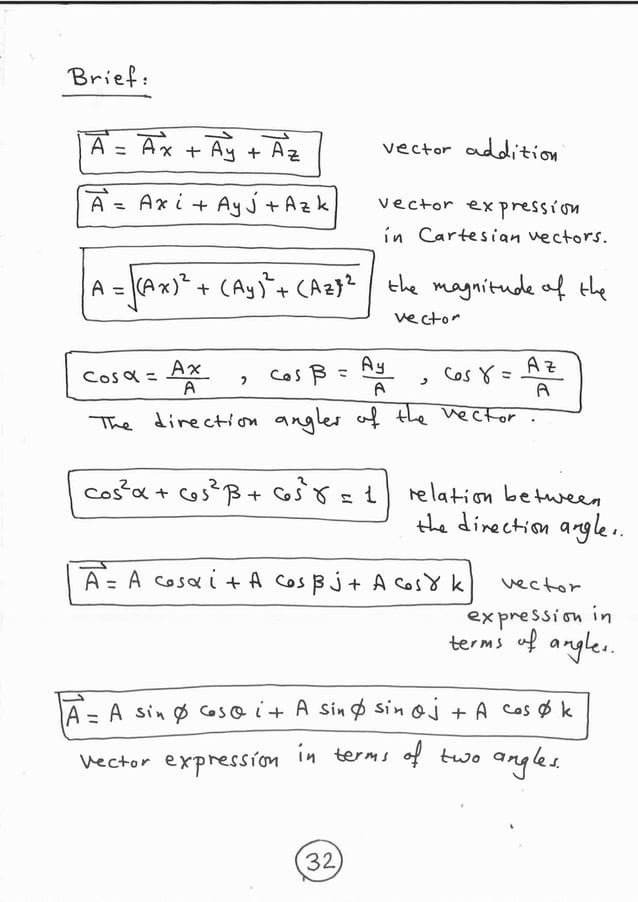 Brief:
A⃗ = A⃗x + A⃗y + A⃗z vector addition
A⃗ = Ax i + Ay j + Az k vector expression
in Cartesian vectors.
A = √((Ax)² + (Ay)² + (Az)²) the magnitude of the
vector
cos α = Ax/A , cos β = Ay/A , cos γ = Az/A
The direction angles of the vector.
cos²α + cos²β + cos²γ = 1 relation between
the direction angles.
A⃗ = A cosα i + A cosβ j + A cosγ k vector
expression in
terms of angles.
A⃗ = A sin ϕ cosθ i + A sin ϕ sin θ j + A cos ϕ k
vector expression in terms of two angles.
32